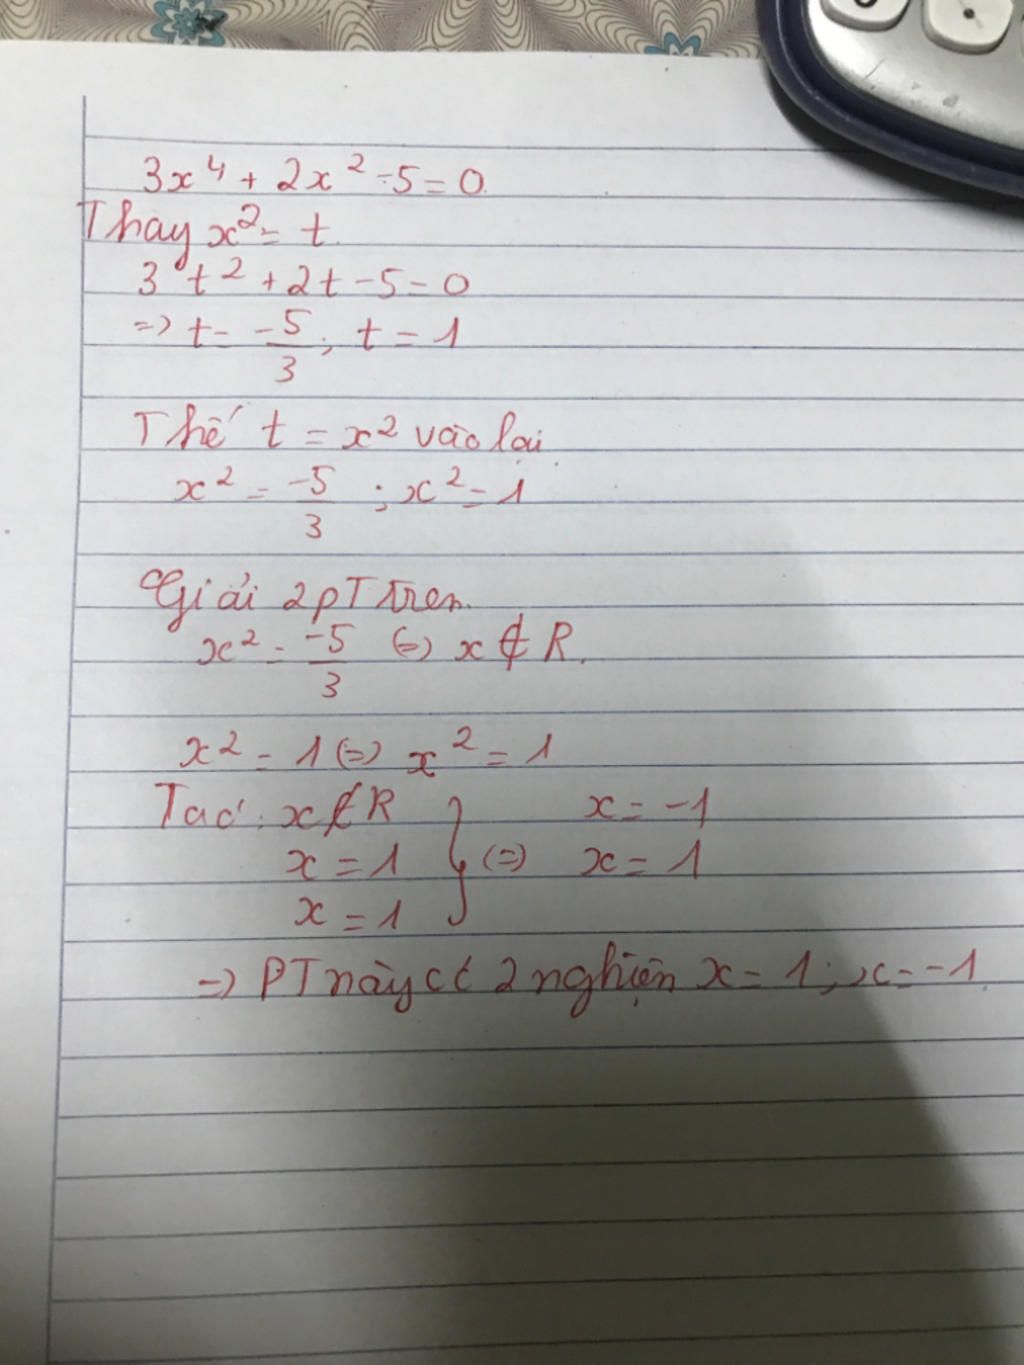 3x⁴ + 2x² - 5 = 0
Thay x² = t
3t² + 2t - 5 = 0
=> t = -5/3; t = 1
Thế t = x² vào lại
x² = -5/3 ; x² = 1
Giải 2 pT tren.
x² = -5/3 (=) x ∉ R.
x² = 1 (=) x² = 1
Ta có: x ∉ R } x = -1
x = 1 } (=) x = 1
x = 1 }
=> PT này có 2 nghiện x = 1; x = -1